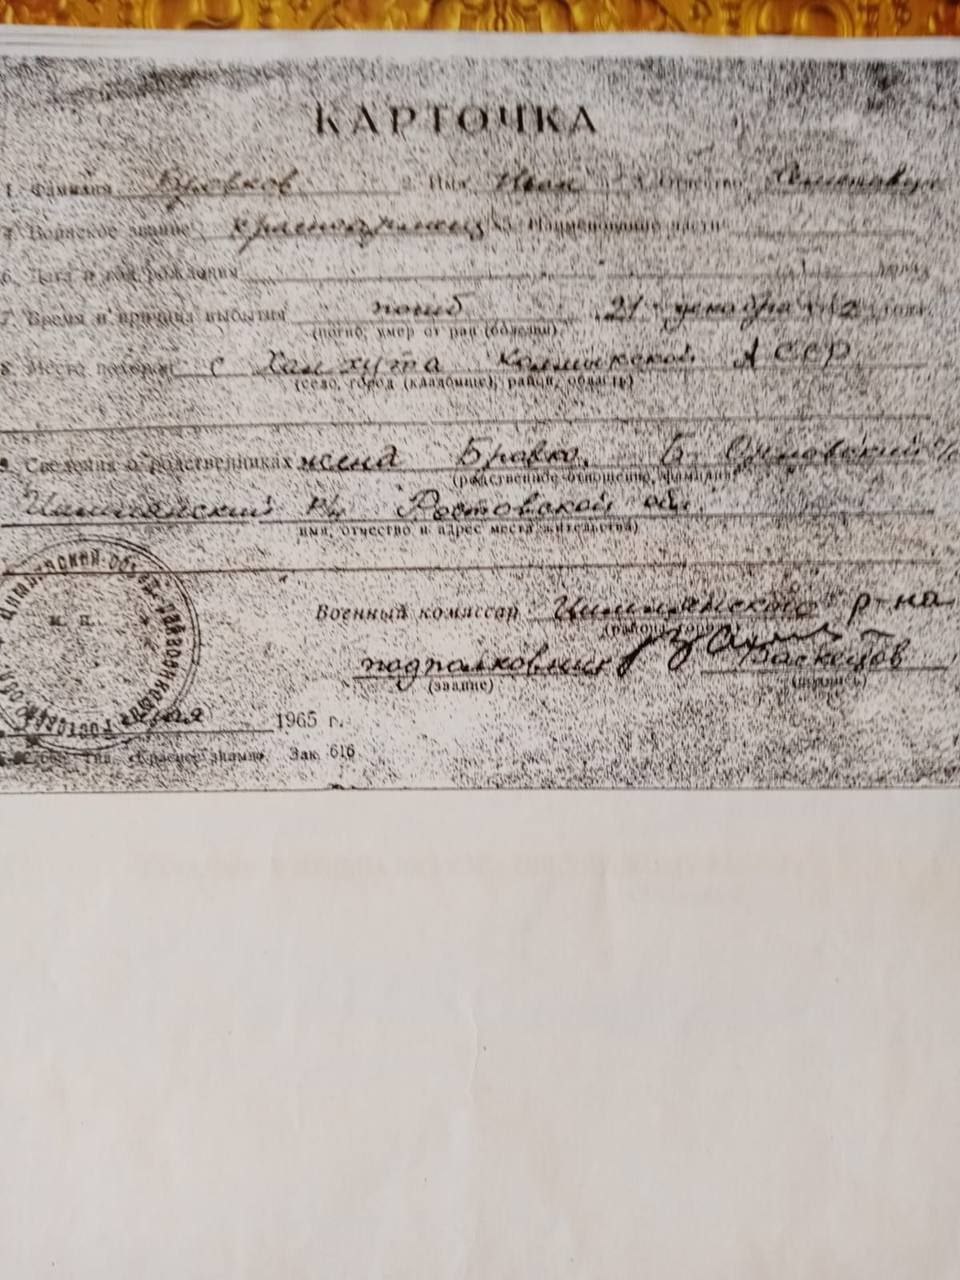 КАРТОЧКА
1. Фамилия Бровков 2. Имя Иван 3. Отчество
4. Воинское звание красноармеец 5. Наименование части
6. Дата и год рождения
7. Время и причина выбытия погиб 21 декабря 42
(погиб, умер от ран (болезни)
8. Место похорон с Халхута Калмыкской АССР
(село, город (кладбище), район, область)
9. Сведения о родственниках жена Бравко, Б-Орловский с/с
(родственное отношение, фамилия,
Цимлянский р-н Ростовской обл.
имя, отчество и адрес места жительства)
Военный комиссар Цимлянского р-на
(район, город)
подполковник
(звание) (подпись)
мая 1965 г.
Тип. «Красное знамя». Зак. 616